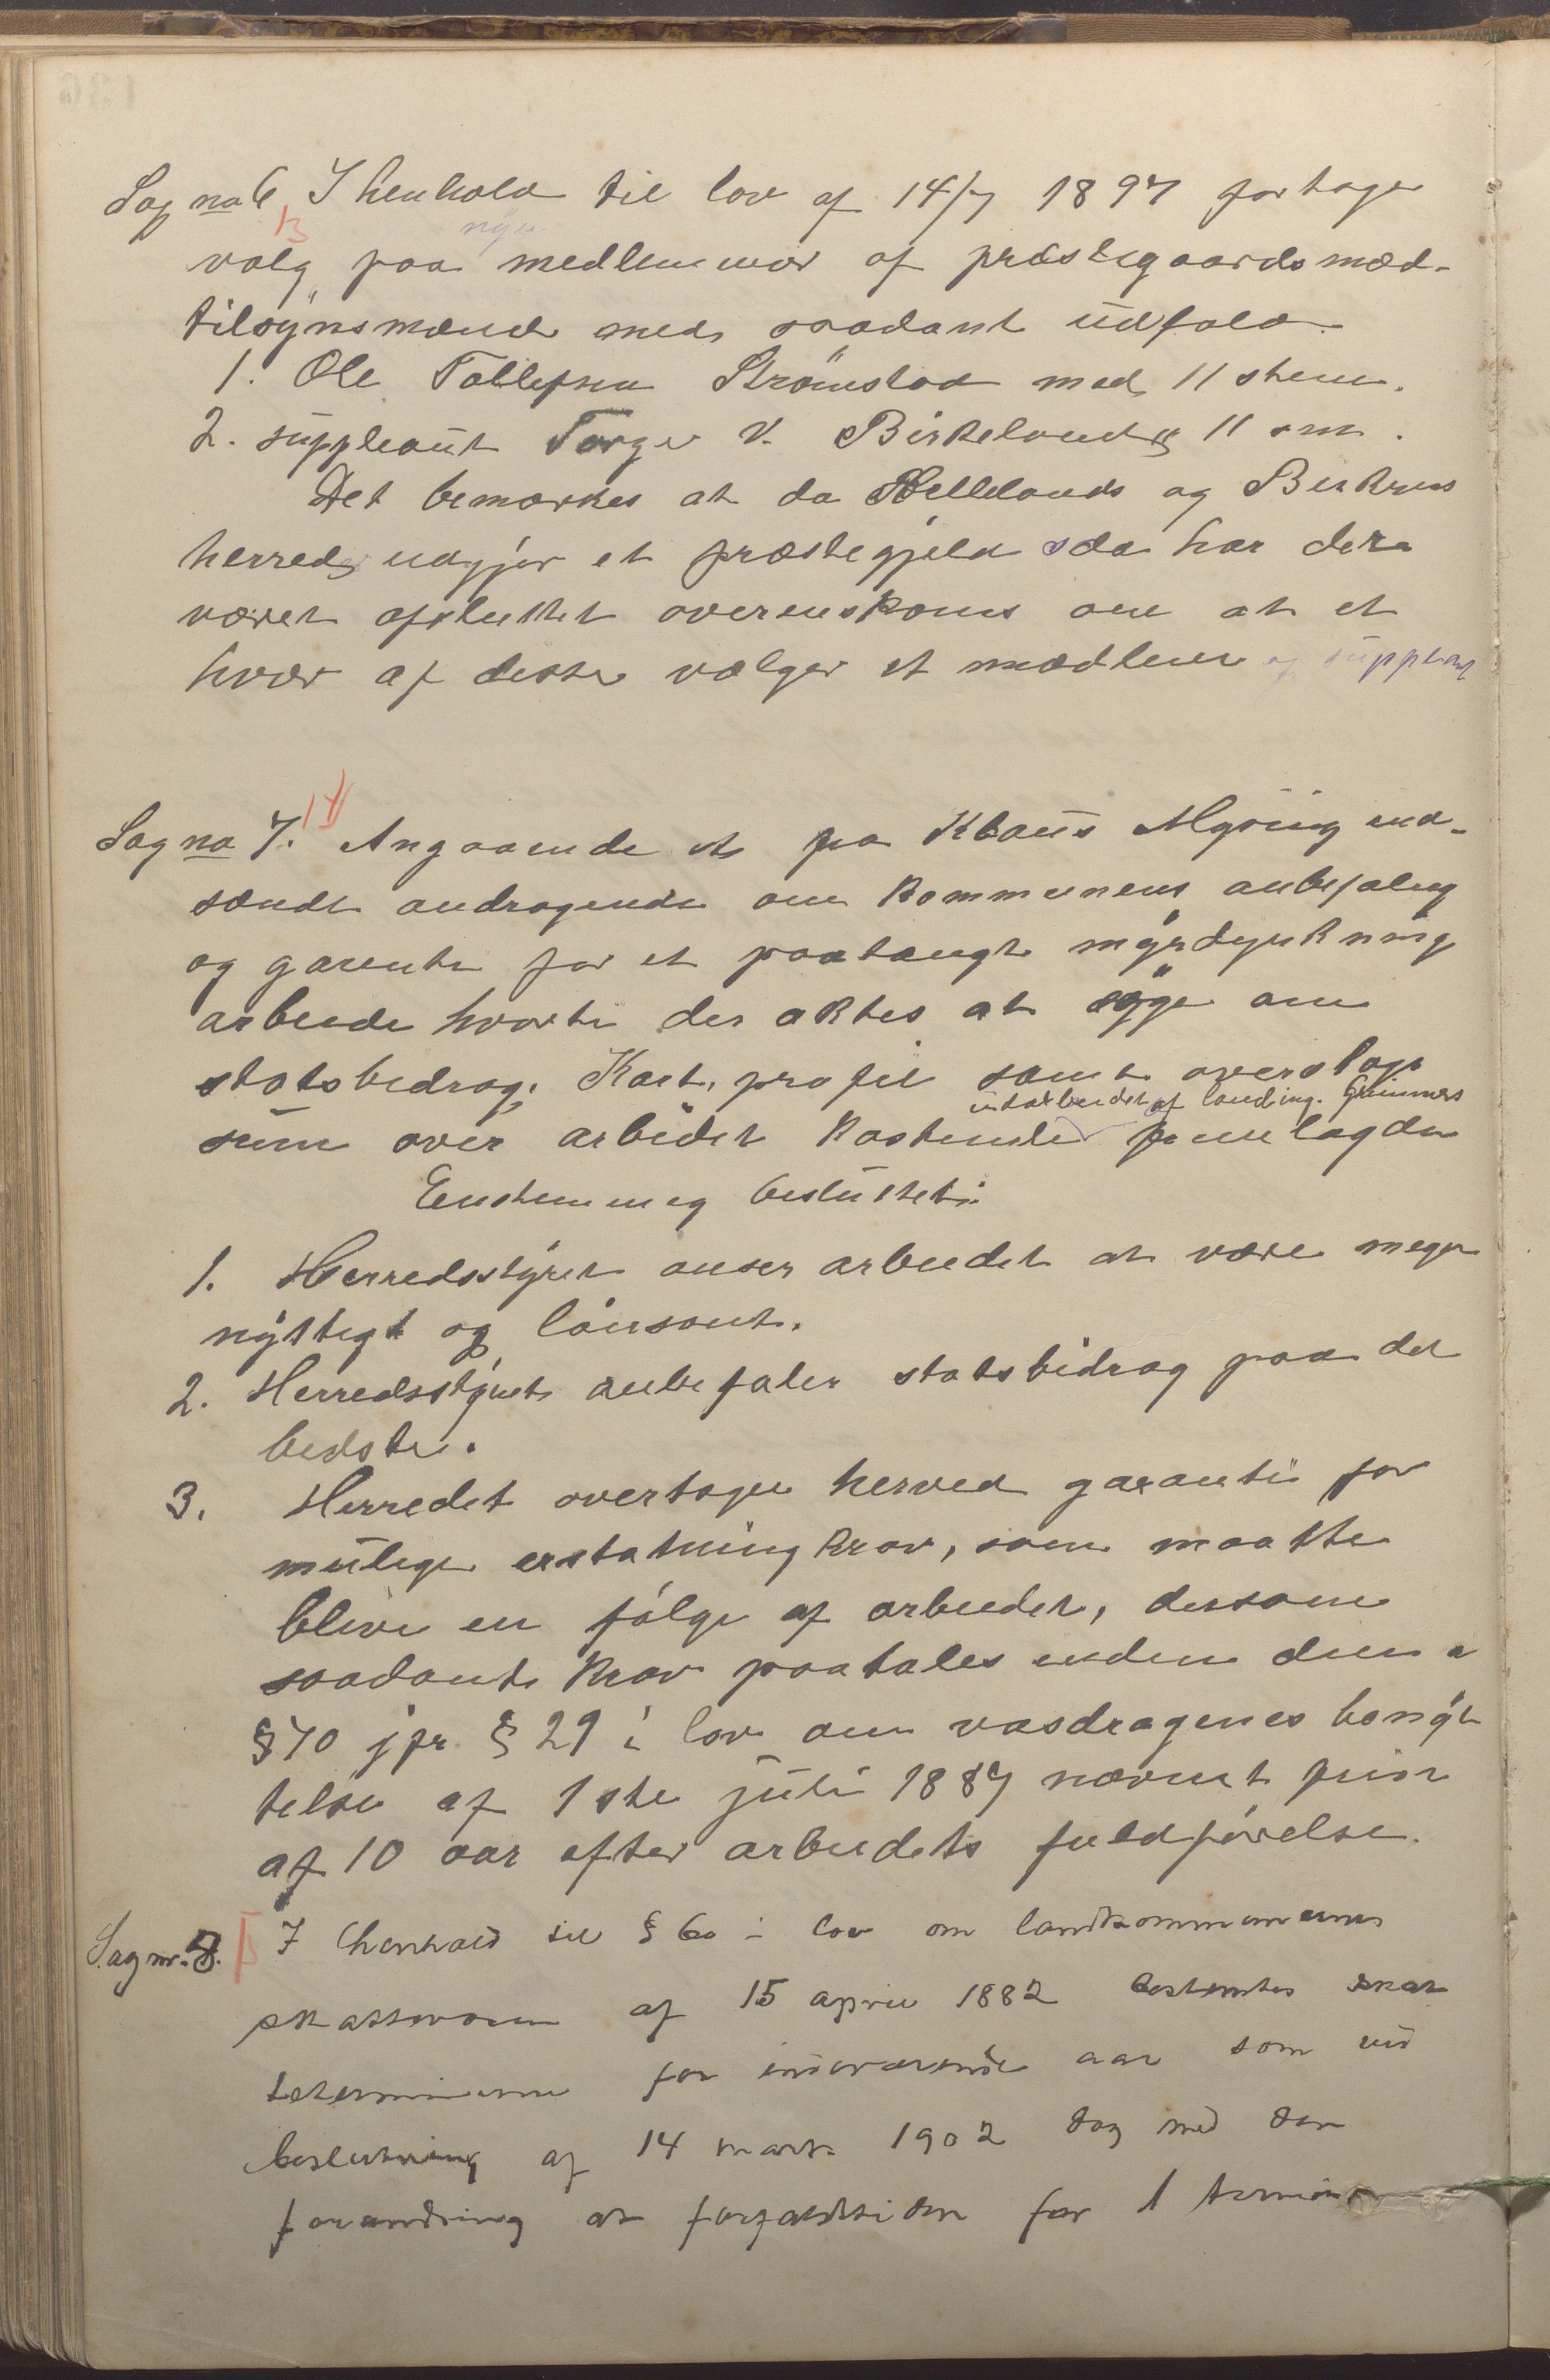 Sag no 6, I henhold til lov af 14/7 1897 fortoges
13 nyu
valg paa medlemmer af præstegaards mæd-
tilsynsmænd med saadant udfald.
1. Ole Tollefsen Strömstad med 11 stem.
2. suppleant Torger V. Birkeland, 11 sm.
Det bemærkes at da Hellelands og Birkrems
herred, udgjør et præstegjeld da har der
været afsluttet overenskoms om at et
hver af disse vælger et medlem og suppleant
Sag no 7. 14 Angaaende et fra Klaus Mysing ind-
sendt andragende om kommunens anbefaling
og garanti for et paatængt myrdyrkning
arbeide hvortil der aktes at søge om
statsbidrag. Kart, profil samt overslags
udarbeidet af landing. Grimnes
sum over arbeidet kostende fremlagdes
Enstemmig besluttet:
1. Herredsstyret anser arbeidet at være meget
nyttigt og lönsomt.
2. Herredsstyret anbefaler statsbidrag paa det
bedste.
3. Herredet overtager herved garanti for
mulige erstatning krav, som maatte
blive en fölge af arbeidet, dersom
saadant krav paatales inden den i
§ 70 jfr § 29 i lov om vasdragenes benyt
telse af 1ste juli 1887 nævnt frist
af 10 aar efter arbeidets fuldførelse.
Sag nr. 8. 15 I henhold til § 60 i lov om landkommunernes
skattevæsen af 15 april 1882 bestemtes skat
teterminerne for indeværende aar som ved
beslutning af 14 marts 1902 dog med den
forandring at forfaldstiden for 1 termin